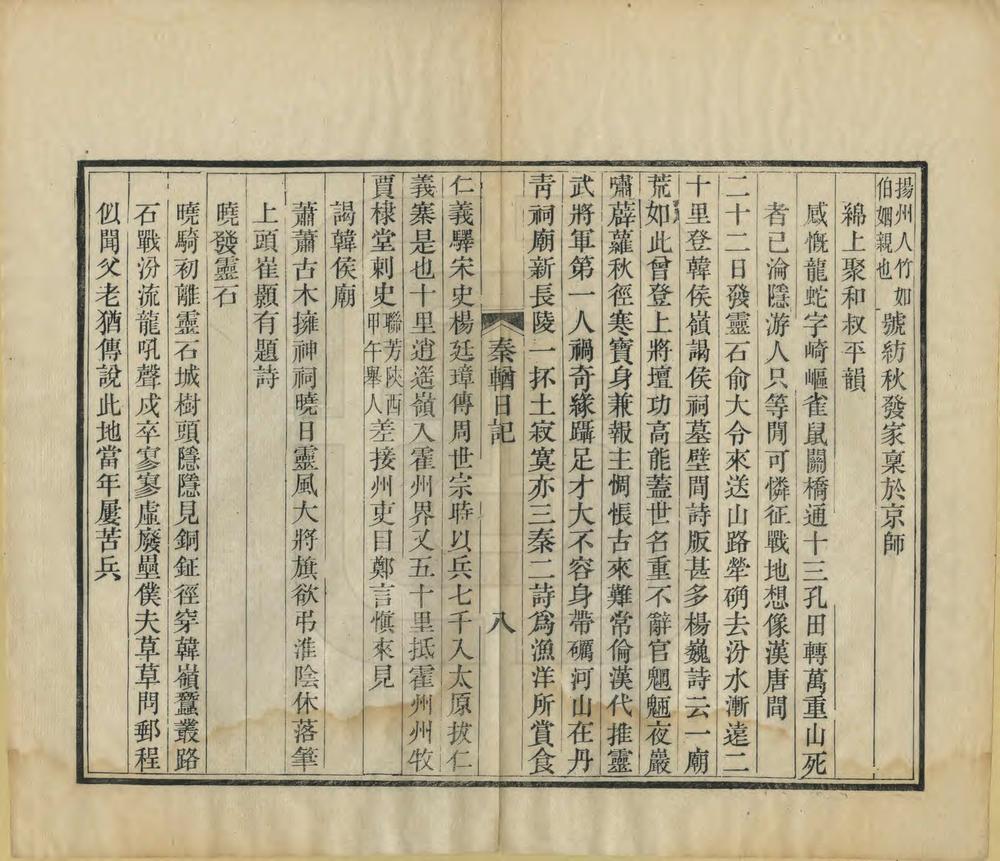 揚州人竹如
伯姻親也
號紡秋發家稟於京師
綿上聚和叔平韻
感慨龍蛇字崎嶇雀鼠關橋通十三孔田轉萬重山死
者已淪隱游人只等閒可憐征戰地想像漢唐間
二十二日發靈石俞大令來送山路犖确去汾水漸遠二
十里登韓侯嶺謁侯祠墓壁間詩版甚多楊巍詩云一廟
荒如此曾登上將壇功高能蓋世名重不辭官魍魎夜巖
嘯薜蘿秋徑寒寶身兼報主惆悵古來難常倫漢代推靈
武將軍第一人禍奇緣躡足才大不容身帶礪河山在丹
青祠廟新長陵一抔土寂寞亦三秦二詩爲漁洋所賞食
秦輶日記
八
仁義驛宋史楊廷璋傳周世宗時以兵七千入太原拔仁
義寨是也十里逍遙嶺入霍州界又五十里抵霍州州牧
賈棣堂刺史
聯芳陝西
甲午舉人
差接州吏目鄭言愼來見
謁韓侯廟
蕭蕭古木擁神祠曉日靈風大將旗欲弔淮陰休落筆
上頭崔顥有題詩
曉發靈石
曉騎初離靈石城樹頭隱隱見銅鉦徑穿韓嶺蠶叢路
石戰汾流龍吼聲戍卒寥寥虛廢壘僕夫草草問郵程
似聞父老猶傳說此地當年屢苦兵